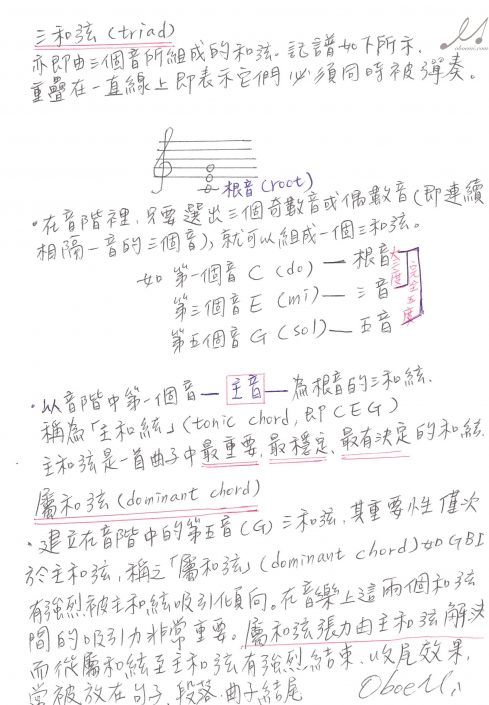 oboemi.com
三和弦 (triad)
亦即由三個音所組成的和弦. 記譜如下所示,
重疊在一直線上即表示它們必須同時被彈奏。
根音 (root)
・在音階裡, 只要選出三個奇數音或偶數音 (即連續
相隔一音的三個音), 就可以組成一個三和弦。
如 第一個音 C (do) — 根音
第三個音 E (mi) — 三音
第五個音 G (sol) — 五音
大三度
完全五度
・以音階中第一個音 — 主音 — 為根音的三和絃,
稱為「主和絃」(tonic chord, 即 CEG)
主和弦是一首曲子中最重要, 最穩定, 最有決定的和絃.
屬和弦 (dominant chord)
・建立在音階中的第五音 (G) 三和弦, 其重要性僅次
於主和弦, 稱之「屬和弦」(dominant chord) 如 GBD
有強烈被主和絃吸引傾向。在音樂上這兩個和弦
間的吸引力非常重要。屬和弦張力由主和弦解決
而從屬和絃至主和弦有強烈結束、收尾效果,
常被放在句子、段落、曲子結尾
OboeMi